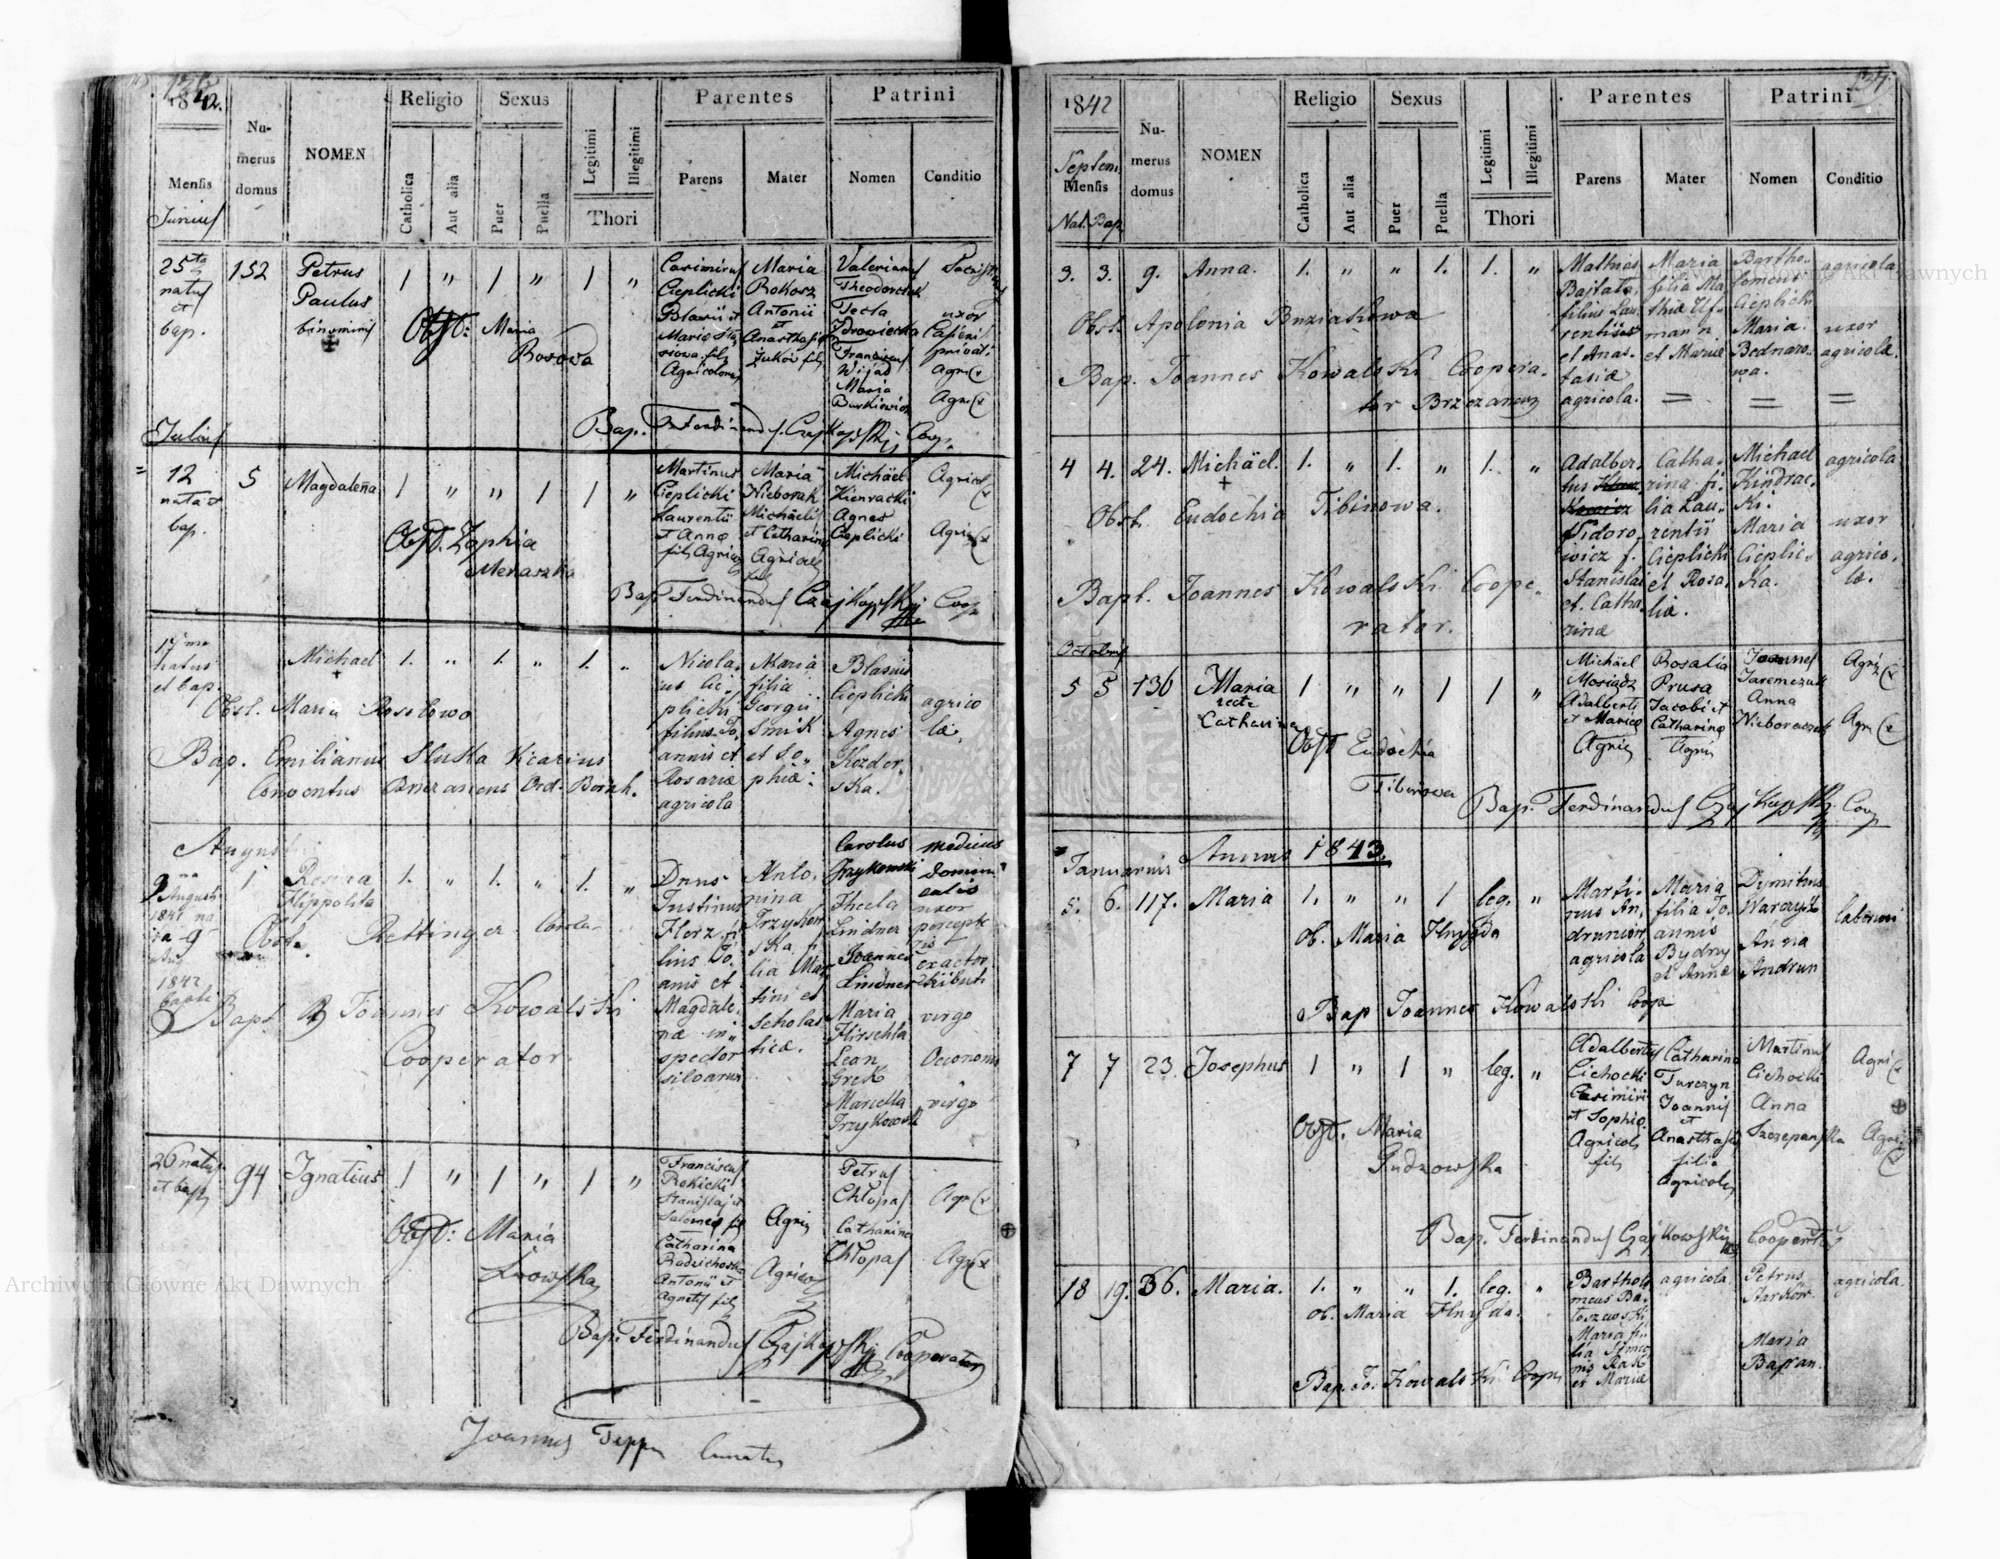 1842.
Religio Sexus Parentes Patrini
Numerus domus
NOMEN
Mensis
Catholica Aut alia Puer Puella Legitimi Illegitimi
Thori
Parens Mater Nomen Conditio
Junius
25ta natus et bap.
152
Petrus
Paulus
binominis
1 " 1 " 1 "
Casimirus
Cieplicki
Blasii et
Agricolarum
Maria
Rokosz
Antonii
et
Anasthasiae
Żuków fil.
Valerianus
Theodorczuk
Tecla
Zdrowiecka
Franciscus
Maria
Burkiewicz
uxor
privati
Agric
Agric
Obst: Maria
Bosowa
Bap. Ferdinandus Czajkowski Coop.
Julius
12
nata et
bap.
5
Magdalena
1 " " 1 1 "
Martinus
Cieplicki
Laurentii
et Annae
fil. Agric
Maria
Nieborak
Michaelis
et Catharina
Agricol
fil
Michael
Kienracki
Agnes
Cieplicki
Agricol
Agric
Obst. Zophia
Menaszka
Bap. Ferdinandus Czajkowski Coop
17ma
natus
et bap.
Michael
1. " 1. " 1. "
Nicola-
us Cie-
plicki
filius Jo-
annis et
Rosariae
agricola
Maria
filia
Georgii
Smik
et So-
phiae.
Blasius
Cieplicki
Agnes
Kozdor-
ska.
agrico
lae.
Obst. Maria Rosolowa
Bap. Emilianus Slutka Vicarius
Conventus Brzezanens Ord. Bernh.
August
9na Augusti
1841 na
ta 9
1842
bapti
1
Rosina
Hippolita
1. " 1. " 1. "
Dnus
Justinus
Florz fi-
lius Jo-
anis et
Magdale-
nae in-
spector
silvarum
Anto-
nina
Trzykow
ska fi-
lia Mar-
tini et
Scholas-
ticae.
Carolus
Trzykowski
Thecla
Lindner
Joannes
Lindner
Maria
Hirschla
Lean
Grek
Marcella
Trzykowski
medicus
domini
calis
uxor
exactor
tributi
virgo
Oeconomi
virgo
Obst. Rettinger Carola
Bapt. Joannes Kowalski
Cooperator.
26 natus
et bapt
94
Ignatius
1 " 1 " 1 "
Franciscus
Rokicki
Stanislaj et
Salomea fil
Catharina
Radzichoska
Antonii et
Agnetis fil
Agric
Agricol
Petrus
Chłopas
Catharina
Chłopas
Agric
Agric
Obst: Maria
Lwowska
Bap. Ferdinandus Czajkowski Cooperator
Joannes Teppa Curatus
1842
Religio Sexus Parentes Patrini
Septem.
Mensis
Nat. Bap.
Numerus domus
NOMEN
Catholica Aut alia Puer Puella Legitimi Illegitimi
Thori
Parens Mater Nomen Conditio
3. 3. 9. Anna. 1. " " 1. 1. "
Mathias
Bajtala
filius Lau-
rentii
et Anas-
tasiae
agricola.
Maria
filia Ma
thiae Uf-
mann
et Mariae
Bartho-
lomeus
Cieplicki
Maria
Bednaro-
wa.
agricola
uxor
agricolae.
Obst. Apolonia Buziakowa
Bap. Joannes Kowalski Coopera-
tor Brzezanens
4 4. 24. Michäel. 1. " 1. " 1. "
Adalber-
tus
Sidoro-
wicz f.
Stanislai
et Catha-
rinae
Catha-
rina fi-
lia Lau-
rentii
Cieplicki
et Rosa-
liae.
Michael
Kindrac-
ki.
Maria
Cieplic-
ka.
agricola
uxor
agrico-
lae.
Obst. Eudochia Tibinowa.
Bapt. Joannes Kowalski Coope-
rator.
Octobris
5 5 136 Maria
recte
Catharina
1 " " 1 1 "
Michäel
Mosiądz
Adalberti
et Mariae
Agric
Rosalia
Prusa
Jacobi et
Catharinae
Agric
Joannes
Jaremczuk
Anna
Nieboraczek
Agric
Agric
Obst Eudochia
Tibinowa
Bap. Ferdinandus Czajkowski Coop
Annus 1843.
Januarius
5. 6. 117. Maria 1. " " 1 leg. "
Marti-
nus An-
drunion
agricola
Maria
filia Jo-
annis
Bydny
et Annae
Dymitrus
Warczyk
Anna
Andrun
Ob. Maria Hnyda
Bap Joannes Kowalski Coop
7 7 23 Josephus 1 " 1 " leg. "
Adalbertus
Cichocki
Casimiri
et Sophiae
Agricol
fil
Catharina
Turczyn
Joannis
et
Anasthasiae
filia
Agricol
Martinus
Cichocki
Anna
Szczepanska
Agric
Agric
Obst. Maria
Gudzowska
Bap. Ferdinandus Czajkowski Cooperator
18 19. 366. Maria. 1. " " 1. leg. "
Bartholo
meus Ba-
toszewski
Maria fi-
lia Simeo
nis Rak
et Mariae
agricola.
Petrus
Harkow
Maria
Baran.
agricola.
ob. Maria Hnyda.
Bap. Jo. Kowalski Coop
Archiwum Główne Akt Dawnych
Archiwum Główne Akt Dawnych